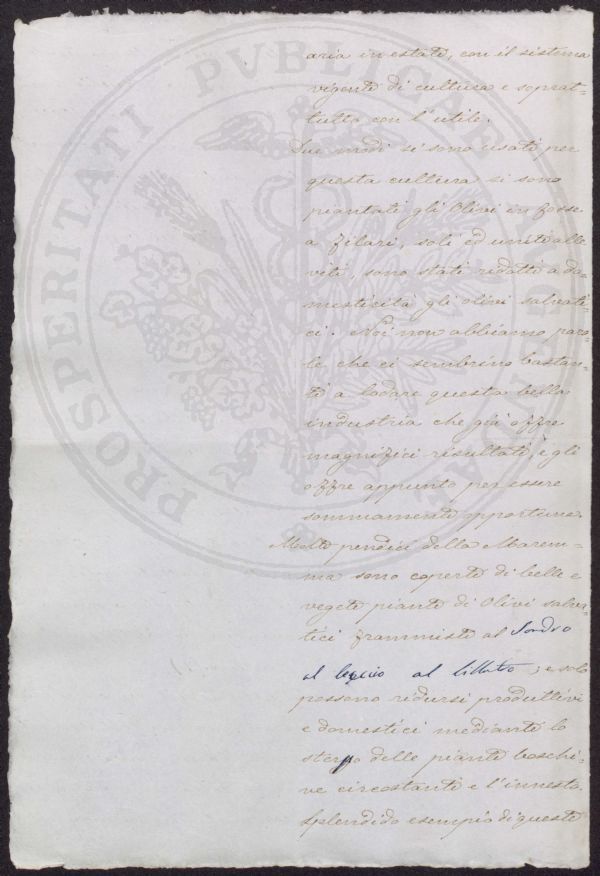 aria in estate, con il sistema
vigente di cultura e soprat-
tutto con l'utile.
Due modi si sono usati per
questa cultura si sono
piantati gli Olivi in fosse
a filari, soli ed uniti alle
viti, sono stati ridotti a do-
mesticità gli olivi salvati-
ci. Noi non abbiamo paro-
le che ci sembrino bastan-
ti a lodare questa bella
industria che già offre
magnifici risultati, e gli
offre appunto per essere
sommamente opportuna.
Molte pendici della Marem-
ma sono coperte di belle e
vegete piante di Olivi salva-
tici frammiste al Sondro
al leccio al lillatro; e solo
possono ridursi produttivi
e domestici mediante lo
sterpo delle piante boschi-
ve circostanti e l'innesto.
Splendido esempio di queste
PROSPERITATI PVBLICAE AVGENDAE